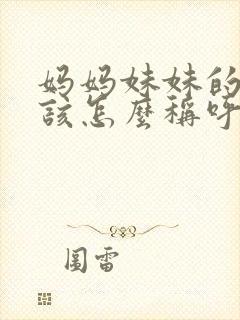 妈妈妹妹的
該怎麼稱呼
圖雷